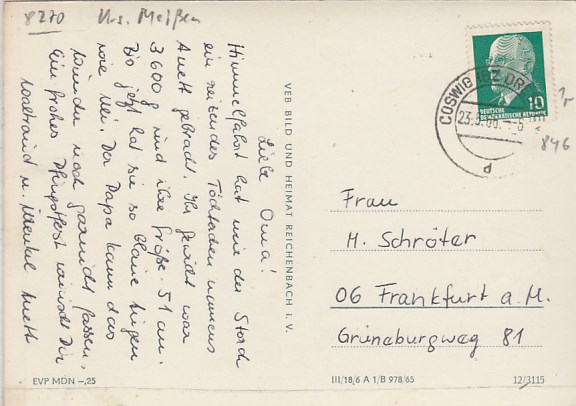 8270 Krs. Meißen
Liebe Oma!
Himmelfahrt hat mir der Storch
ein reizendes Töchterchen namens
Anett gebracht. Ihr Gewicht war
3600 g und ihre Größe 51 cm.
Bis jetzt hat sie so blaue Augen
wie wir. Der Papa kann das
Wunder noch garnicht fassen.
Ein frohes Pfingstfest wünscht Dir
Waltraud u. Anett
VEB BILD UND HEIMAT REICHENBACH I. V.
COSWIG (BZ DR
d
10
DEUTSCHE
DEMOKRATISCHE REPUBLIK
1,-
846
Frau
M. Schröter
06 Frankfurt a. M.
Grüneburgweg 81
EVP MDN -,25
III/18/6 A 1/B 978/65
12/3115